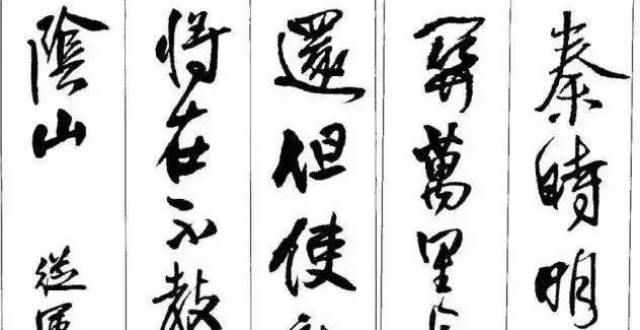 秦時明
關萬里
還但使
將在不教
陰山 從軍